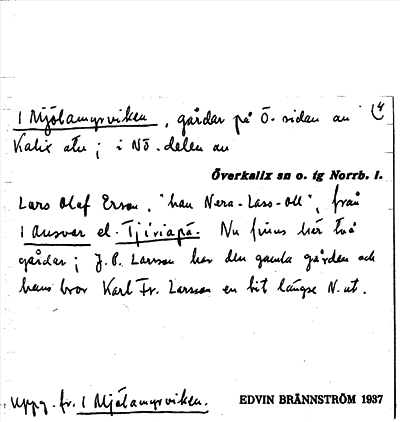 1 Mjölamyrviken, gårdar på Ö. sidan av 4
Kalix älv; i NÖ. delen av
Överkalix sn o. tg Norrb. l.
Lars Olof Ersson, "han Nera-Lass-Oll", från
1 Ansvar el. Tjiviapä. Nu finns här två
gårdar; J. P. Larsson har den gamla gården och
hans bror Karl Fr. Larsson en bit längre N. ut.
Uppg. fr. 1 Mjölamyrviken.
EDVIN BRÄNNSTRÖM 1937